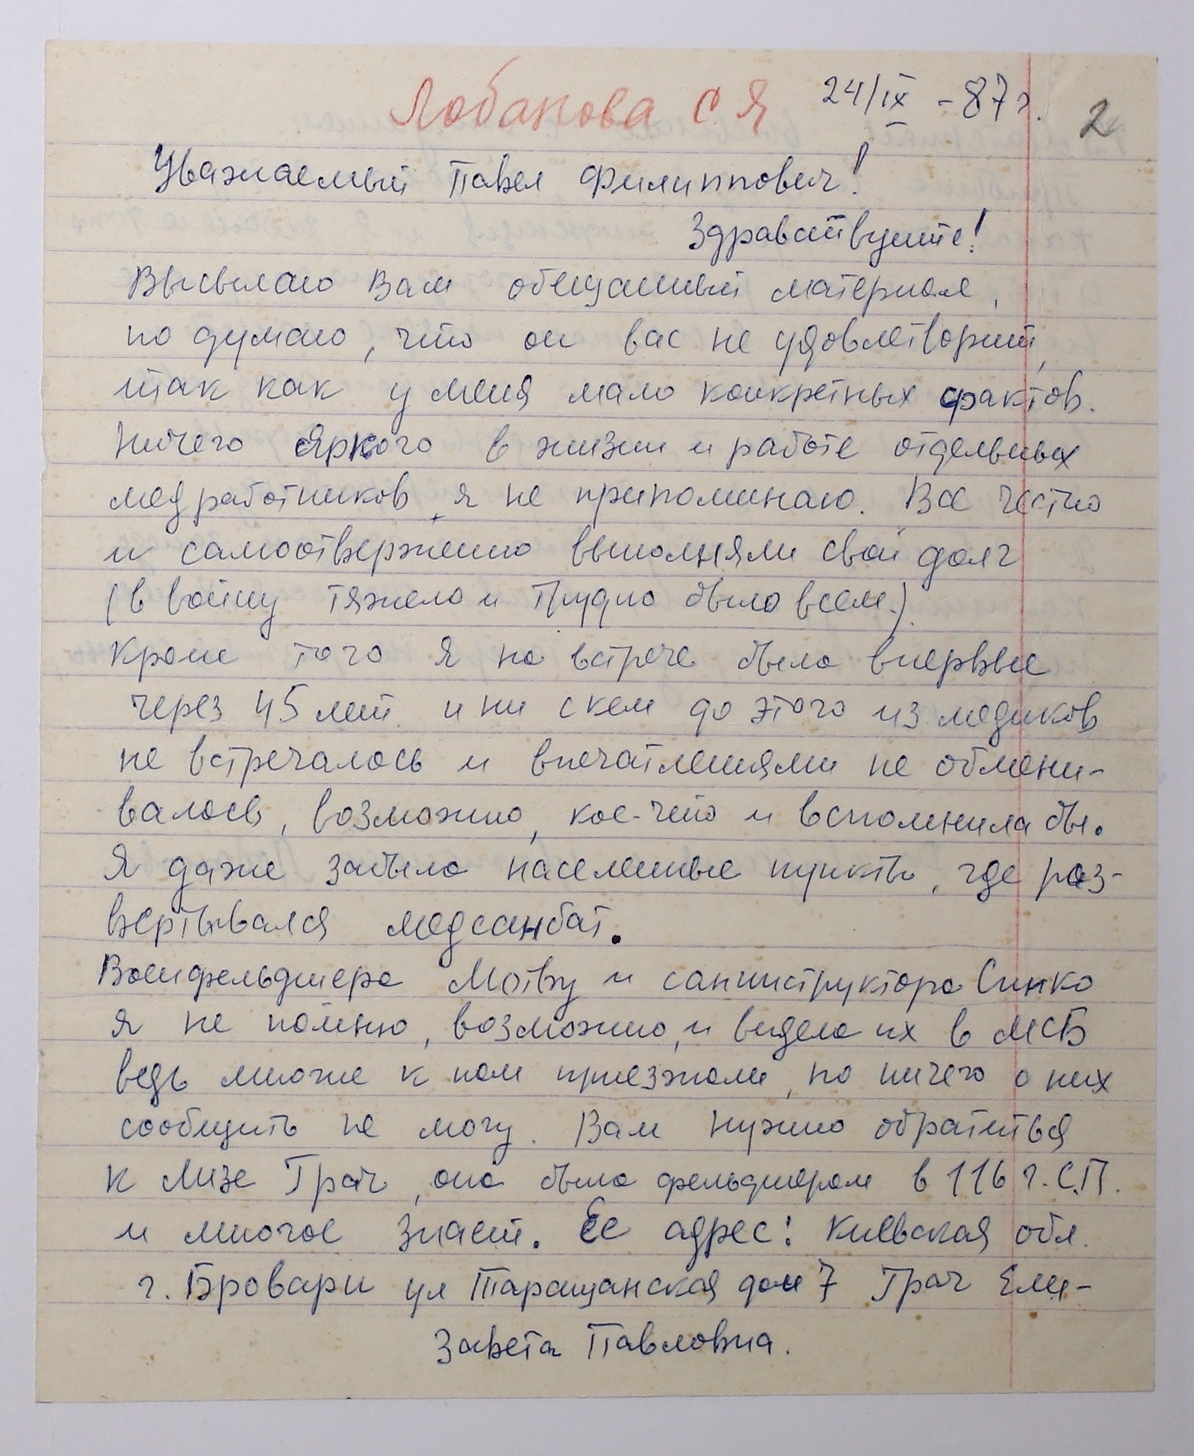 Лобанова С. Я 24/IX - 87 г. 2
Уважаемый Павел Филиппович!
Здравствуйте!
Высылаю Вам обещанный материал,
но думаю, что он вас не удовлетворит,
так как у меня мало конкретных фактов.
Ничего яркого в жизни и работе отдельных
медработников я не припоминаю. Все честно
и самоотверженно выполняли свой долг
(в войну тяжело и трудно было всем.)
Кроме того я на встрече была впервые
через 45 лет и ни с кем до этого из медиков
не встречалась и впечатлениями не обмени-
валась, возможно, кое-что и вспомнила бы.
Я даже забыла населенные пункты, где раз-
вертывался медсанбат.
Военфельдшера Мотву и санинструктора Синко
я не помню, возможно, и видела их в МСБ
ведь многие к нам приезжали, но ничего о них
сообщить не могу. Вам нужно обратиться
к Лизе Грач, она была фельдшером в 116 г. С.П.
и многое знает. Ее адрес: Киевская обл.
г. Бровари ул Таращанская дом 7 Грач Ели-
завета Павловна.